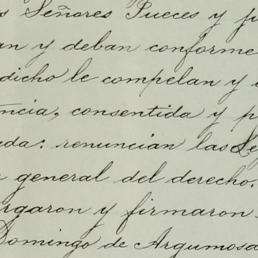 Señores Jueces y
y deban conforme
dicho le compelan y
consentida y
renuncian las
general del derecho.
y firmaron
Domingo de Argumosa